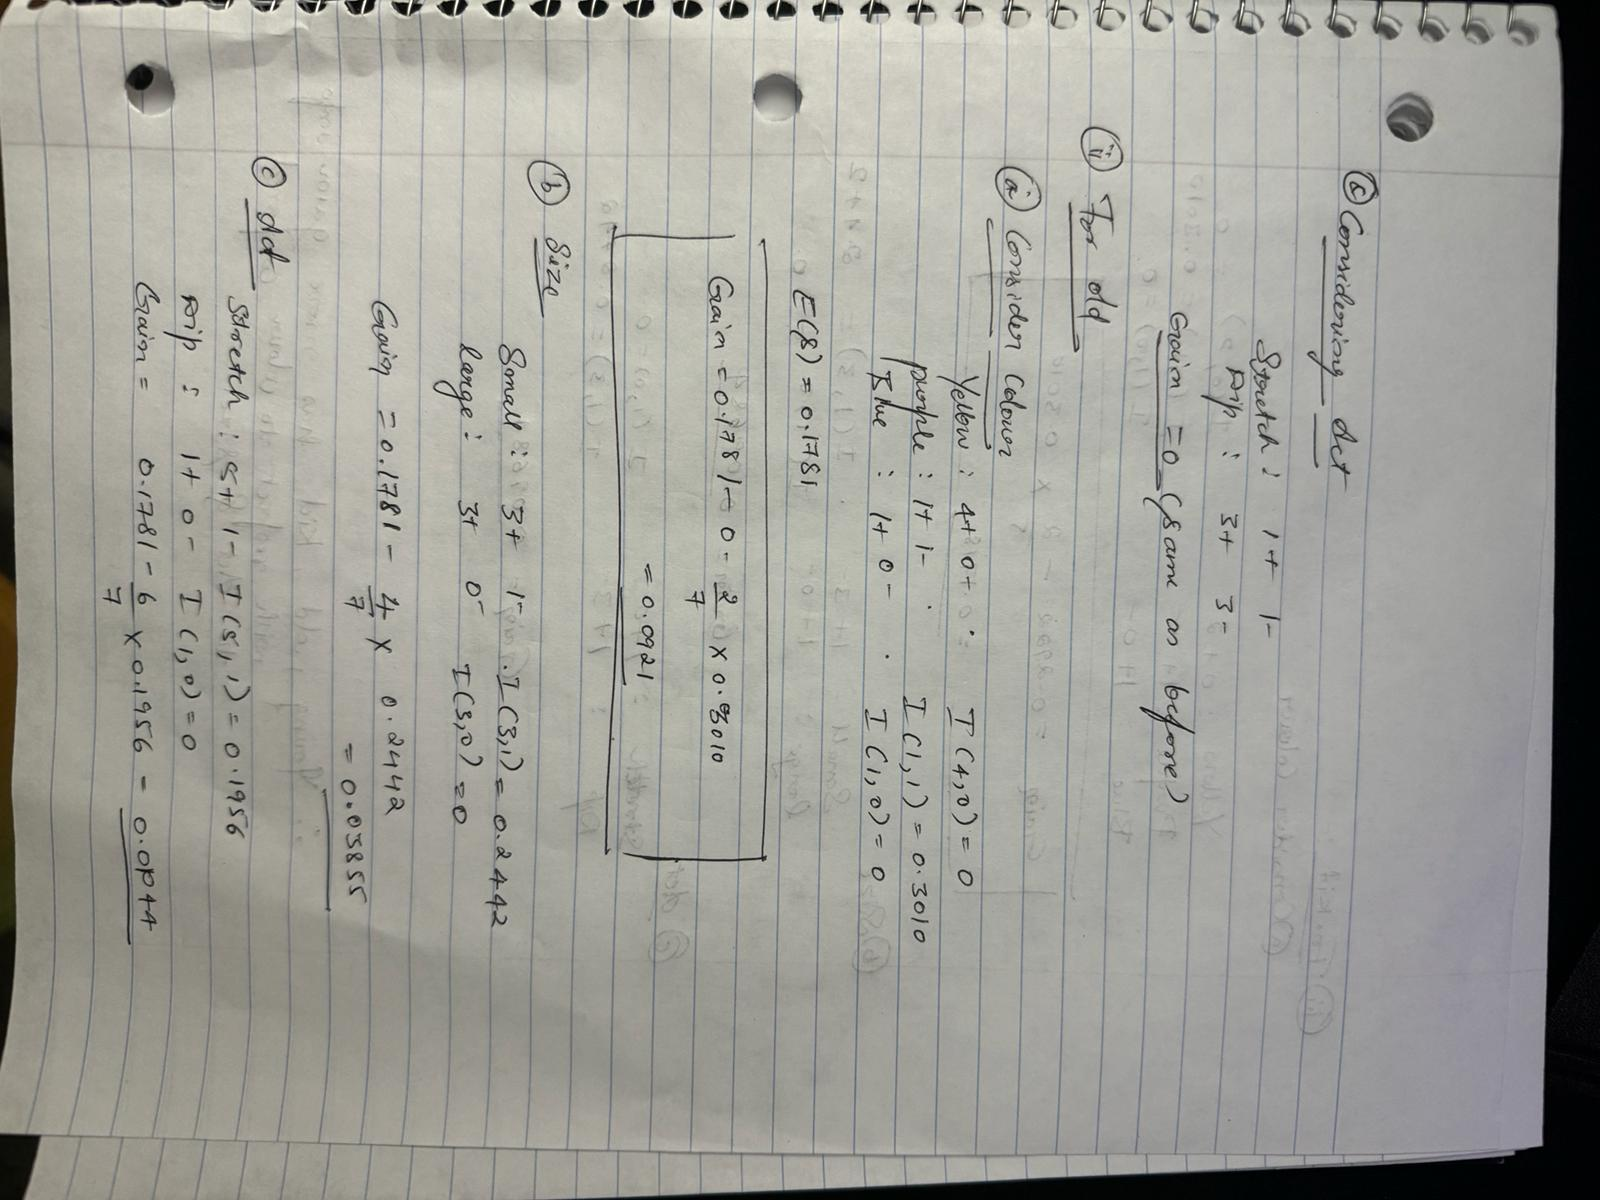 (c) Considering act
Stretch : 1+ 1-
Dip : 3+ 3-
Gain = 0 (same as before)
(ii) For old
(a) Consider Colour
Yellow : 4+ 0- I(4,0) = 0
purple : 1+ 1- I(1,1) = 0.3010
Blue : 1+ 0- I(1,0) = 0
E(S) = 0.1781
Gain = 0.1781 - 0 - 2/7 x 0.3010
= 0.0921
(b) Size
Small : 3+ 1- I(3,1) = 0.2442
large : 3+ 0- I(3,0) = 0
Gain = 0.1781 - 4/7 x 0.2442
= 0.03855
(c) act
Stretch : 5+ 1- I(5,1) = 0.1956
Dip : 1+ 0- I(1,0) = 0
Gain = 0.1781 - 6/7 x 0.1956 = 0.0144